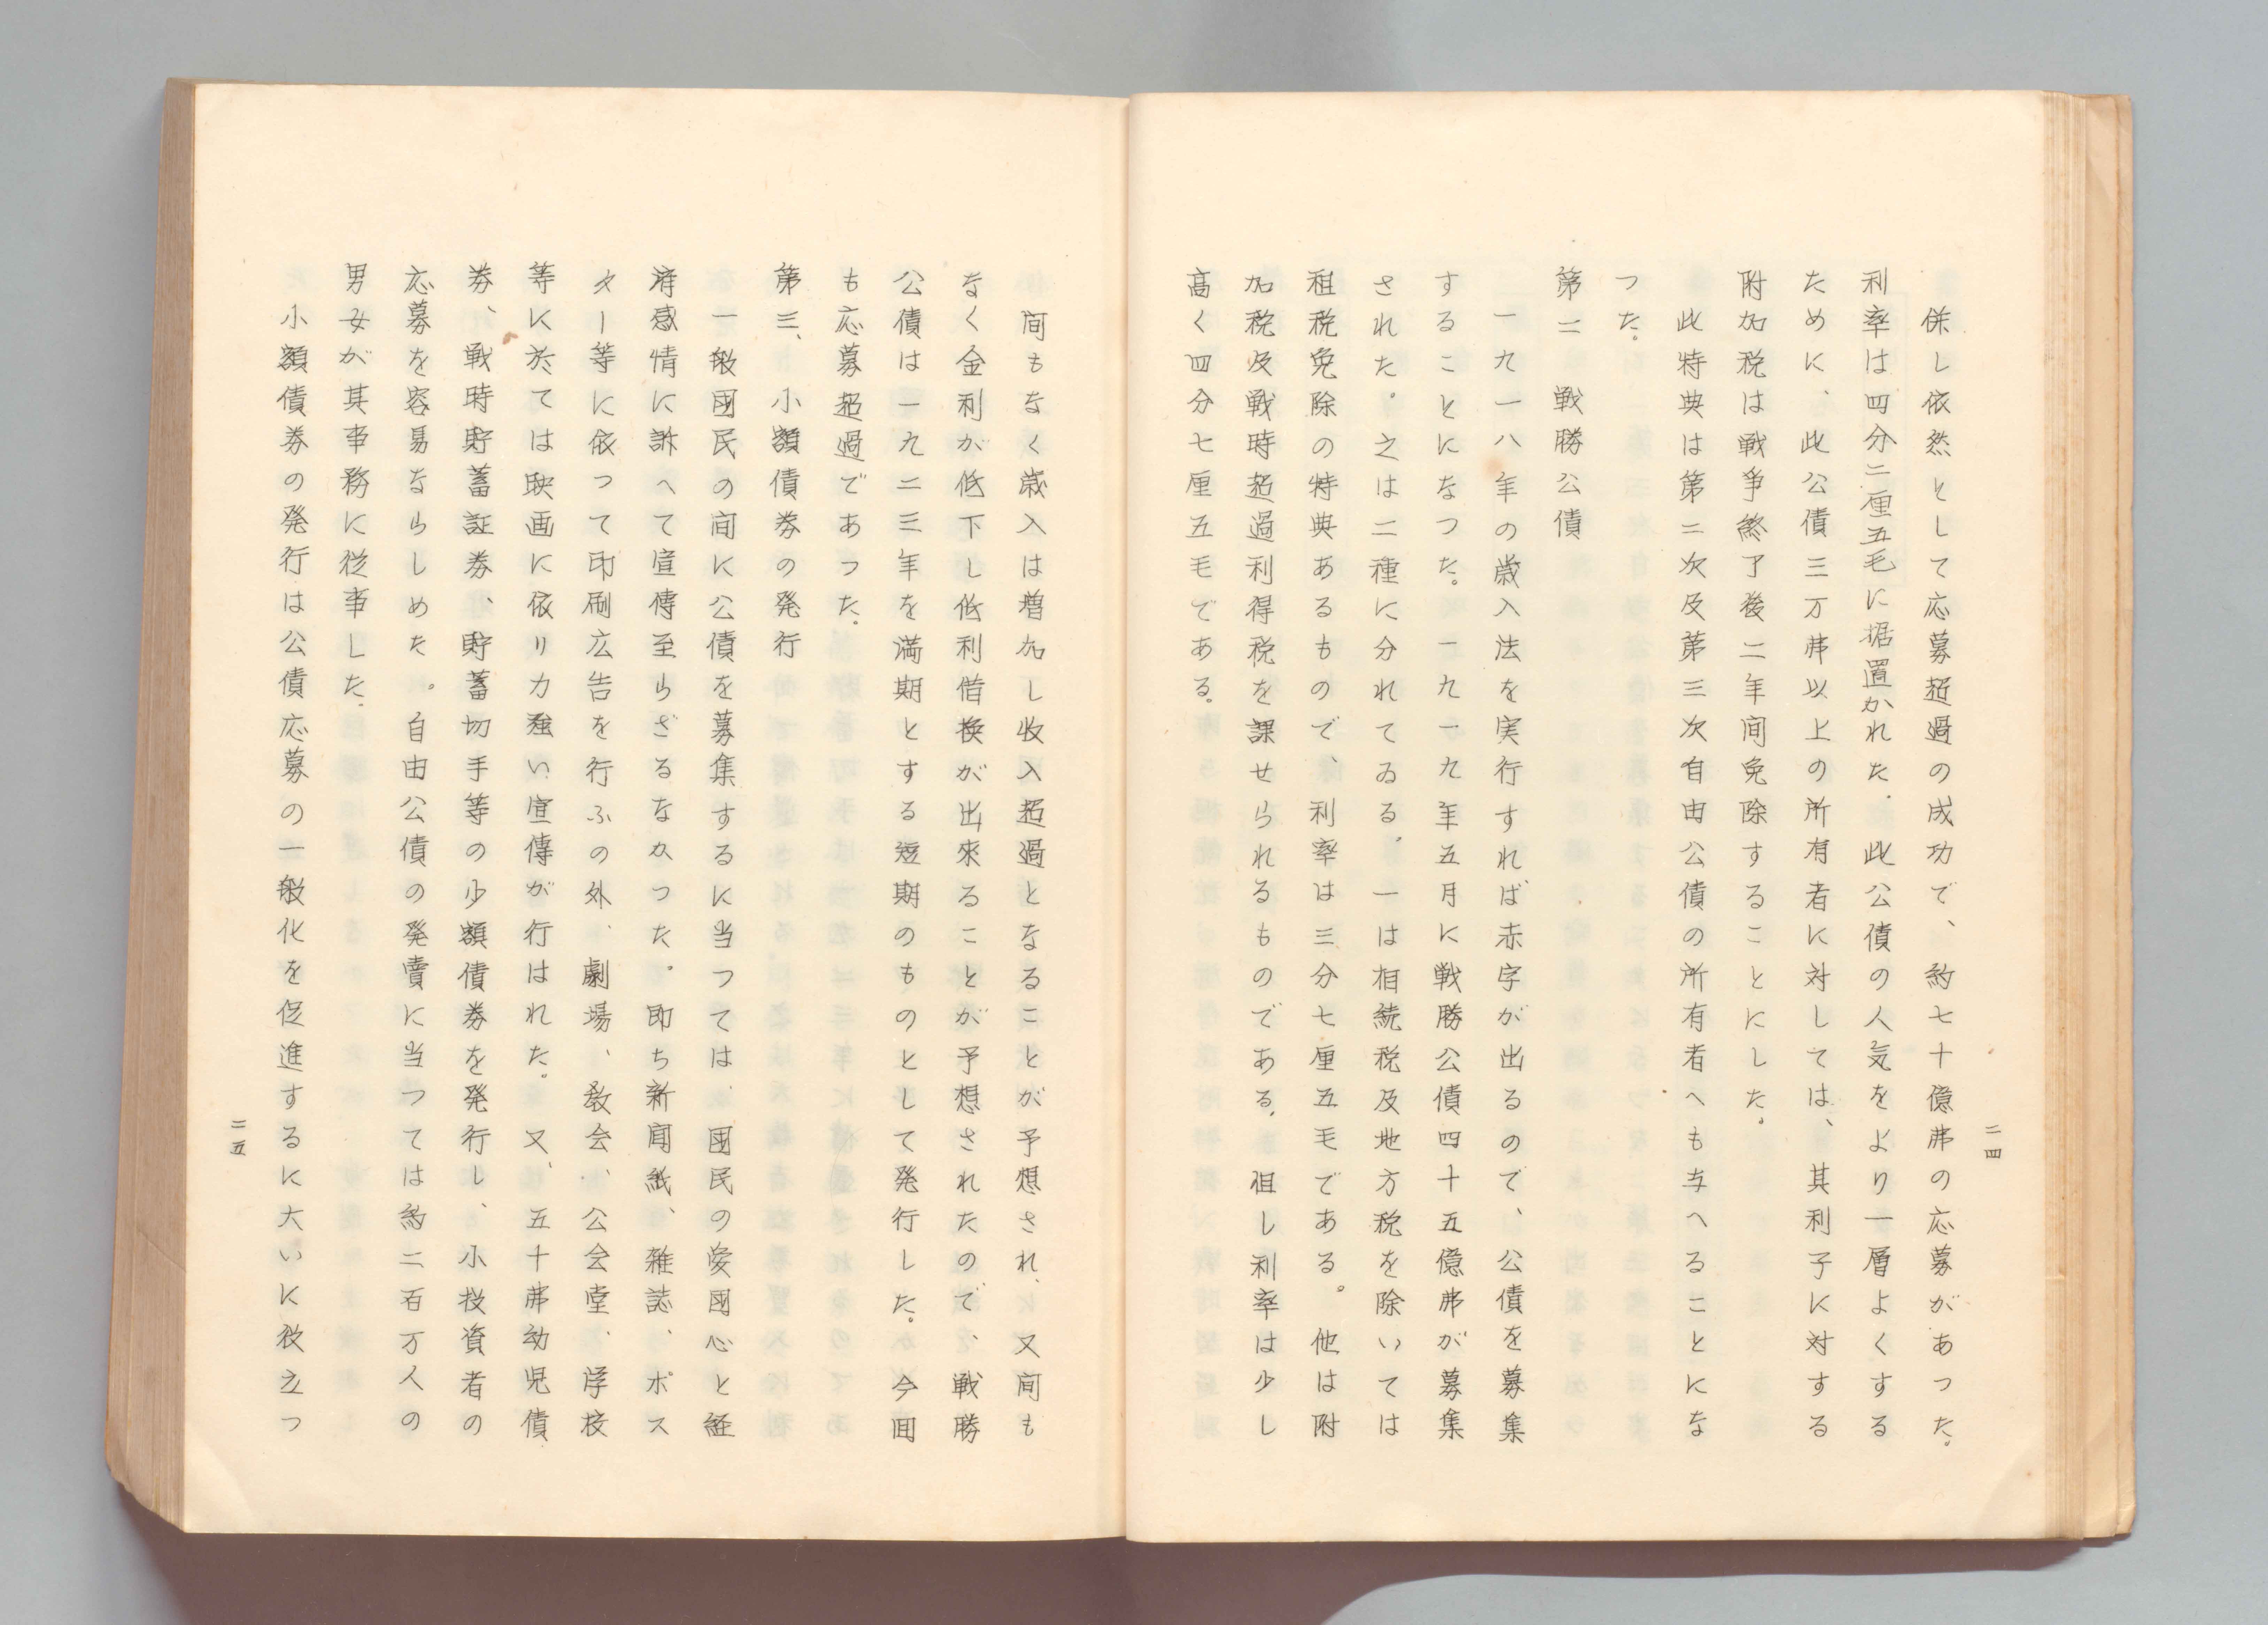 二四
併し依然として応募超過の成功で、約七十億弗の応募があった。
利率は四分二厘五毛に据置かれた。此公債の人気をより一層よくする
ために、此公債三万弗以上の所有者に対しては、其利子に対する
附加税は戦争終了後二年間免除することにした。
此特典は第二次及第三次自由公債の所有者へも与へることにな
つた。
第二　戦勝公債
一九一八年の歳入法を実行すれば赤字が出るので、公債を募集
することになつた。一九一九年五月に戦勝公債四十五億弗が募集
された。之は二種に分れてゐる。一は相続税及地方税を除いては
租税免除の特典あるもので、利率は三分七厘五毛である。他は附
加税及戦時超過利得税を課せられるものである、但し利率は少し
高く四分七厘五毛である。
間もなく歳入は増加し收入超過となることが予想され、又間も
なく金利が低下し低利借換が出來ることが予想されたので、戦勝
公債は一九二三年を満期とする短期のものとして発行した。今回
も応募超過であつた。
第三、小額債券の発行
一般國民の间に公債を募集するに当つては、國民の愛國心と経
済感情に訴へて宣傳至らざるなかつた。即ち新聞紙、雑誌、ポス
ター等に依つて印刷広告を行ふの外、劇場、教会、公会堂、学校
等に於ては映画に依リ力強い宣傳が行はれた。又、五十弗幼児債
券、戦時貯蓄証券、貯蓄切手等の少額債券を発行し、小投資者の
応募を容易ならしめた。自由公債の発賣に当つては約二百万人の
男女が其事務に従事した。
小額債券の発行は公債応募の一般化を促進するに大いに役立つ
二五